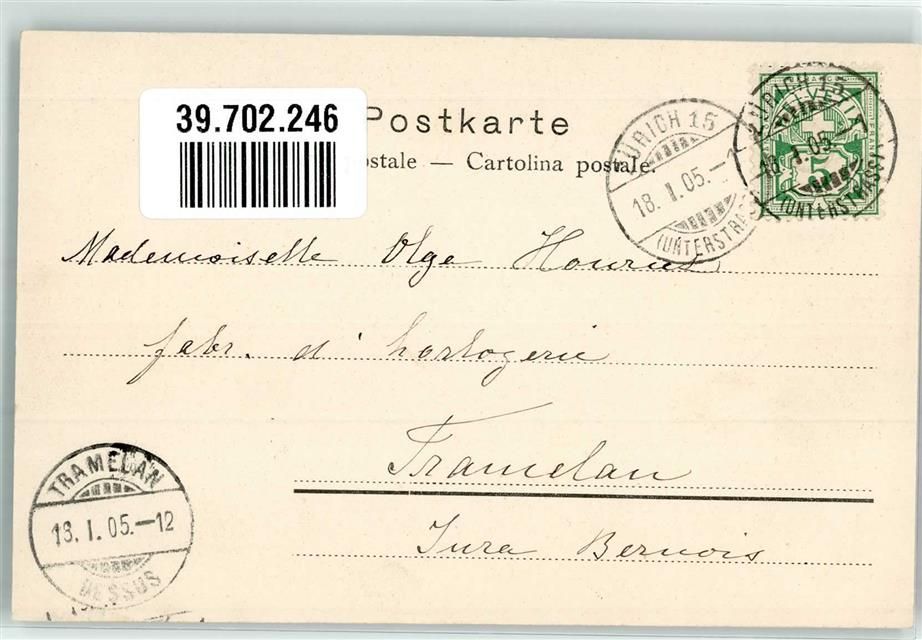 39.702.246
Postkarte
ostale — Cartolina postale.
ZÜRICH 15
18. I. 05.-
(UNTERSTRASS)
ZÜRICH 15
18. I. 05
(UNTERSTRASS)
5
Mademoiselle Olga Houriet
fabr. d'horlogerie
Tramelan
Jura Bernois
TRAMELAN
18. I. 05.-12
DESSUS